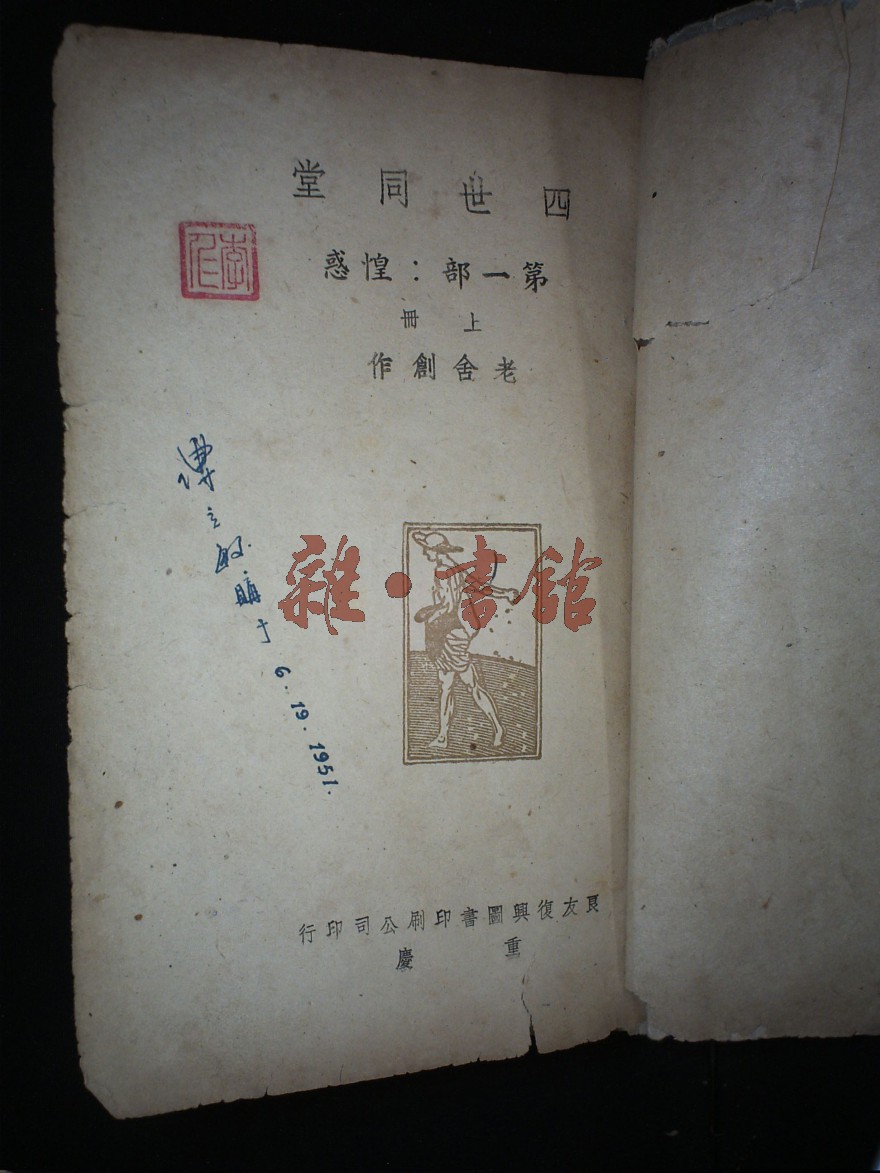 四世同堂
第一部：惶惑
上冊
老舍創作
購于 6.19.1951.
雜·書館
良友復興圖書印刷公司印行
重慶